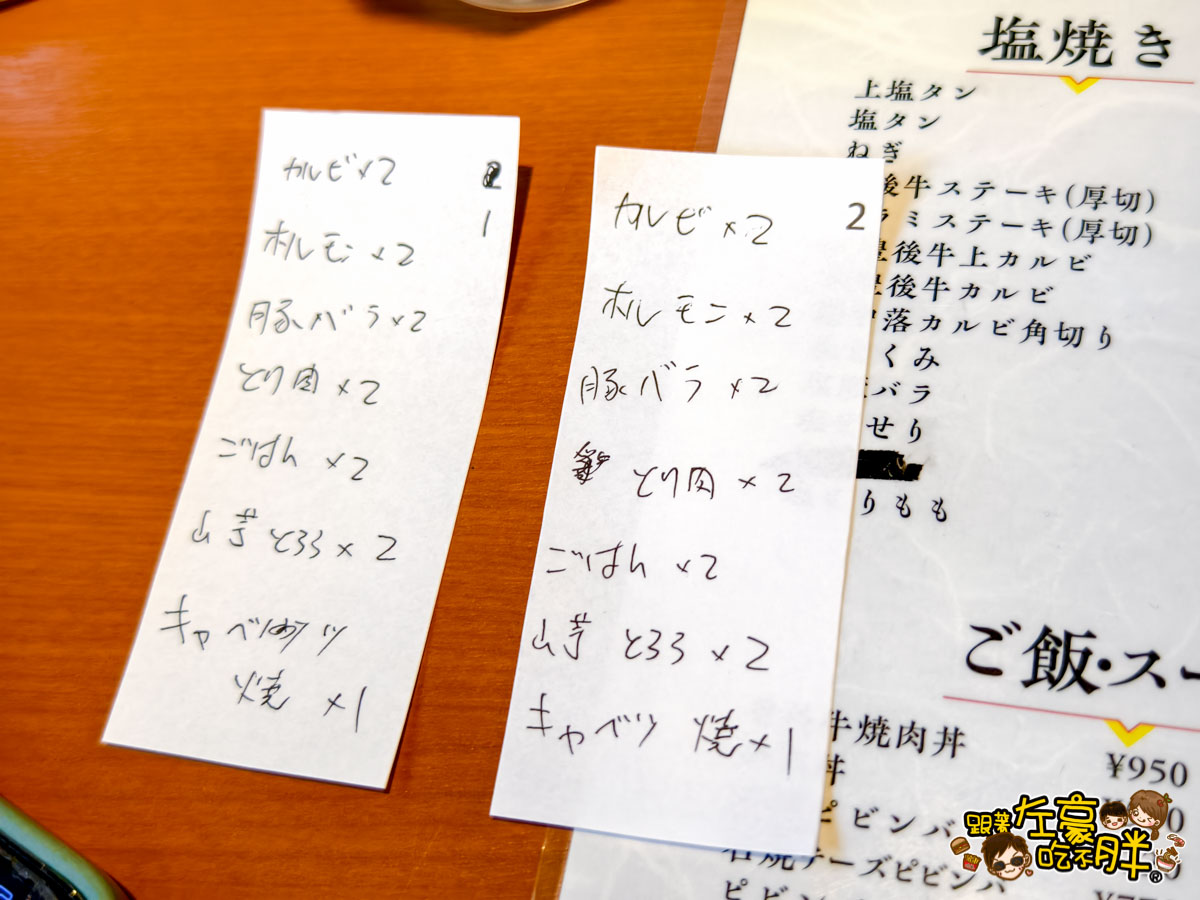 カルビ×2
1
ホルモン×2
豚バラ×2
とり肉×2
ごはん×2
山芋とろろ×2
キャベツ
焼×1
カルビ×2
2
ホルモン×2
豚バラ×2
とり肉×2
ごはん×2
山芋とろろ×2
キャベツ焼×1
塩焼き
上塩タン
塩タン
ねぎ
後牛ステーキ(厚切)
ラミステーキ(厚切)
豊後牛上カルビ
豊後牛カルビ
落カルビ角切り
くみ
バラ
せり
りもも
ご飯・スー
牛焼肉丼
¥950
丼
ピビンバ
石焼チーズピビンバ
ピビン
跟著左豪吃不胖®